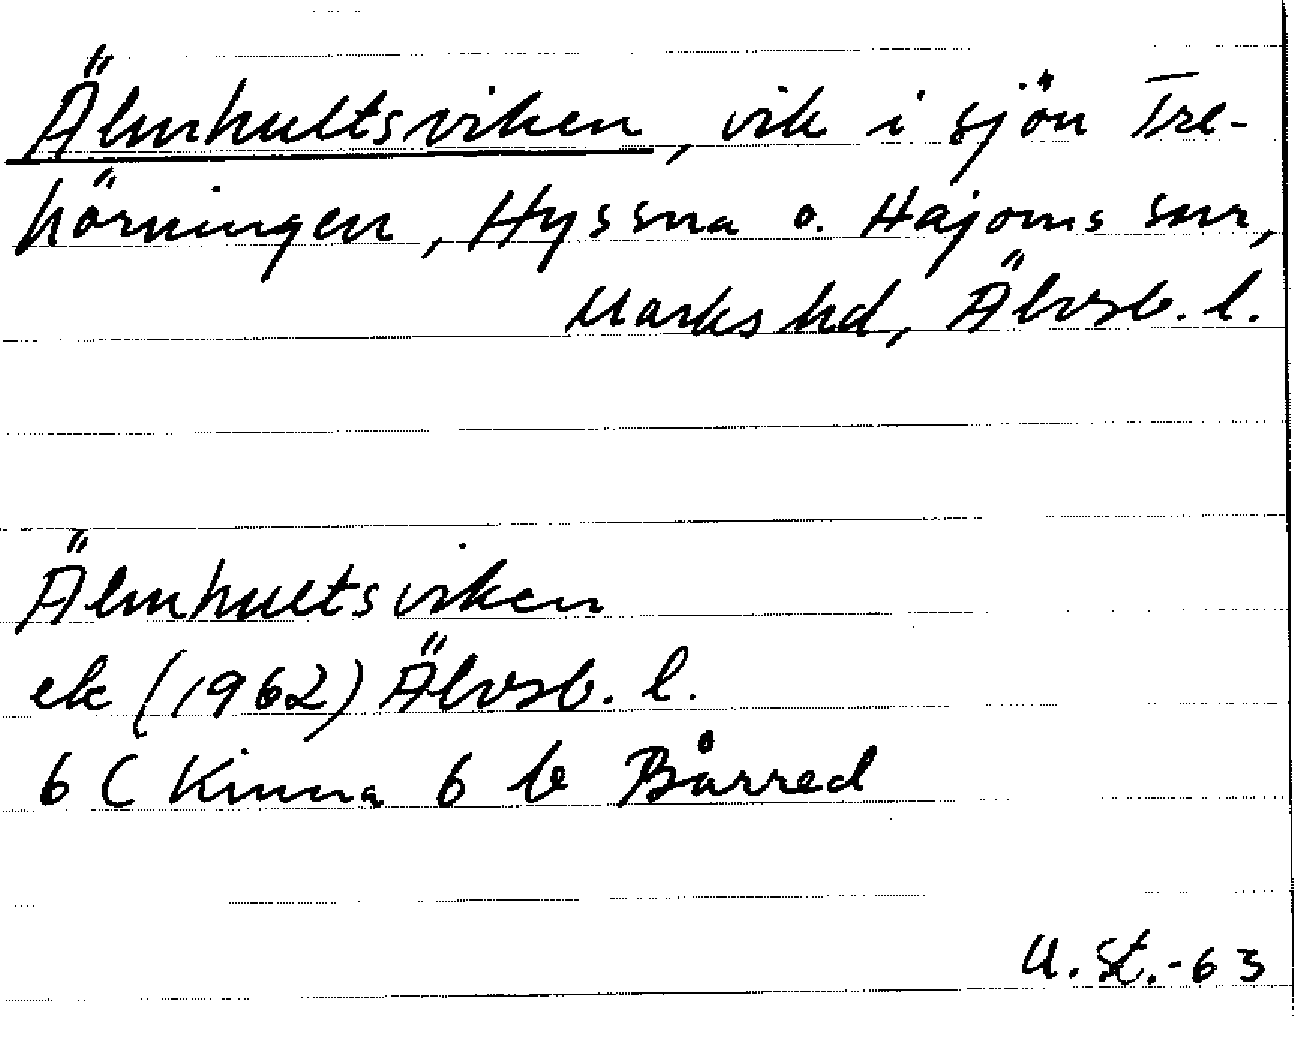 Älmhultsviken, vik i sjön Tre-
hörningen, Hyssna o. Hajoms snr,
Marks hd, Älvsb. l.
Älmhultsviken
ek (1962) Älvsb. l.
6 C Kinna 6 b Bårred
U. St.-63